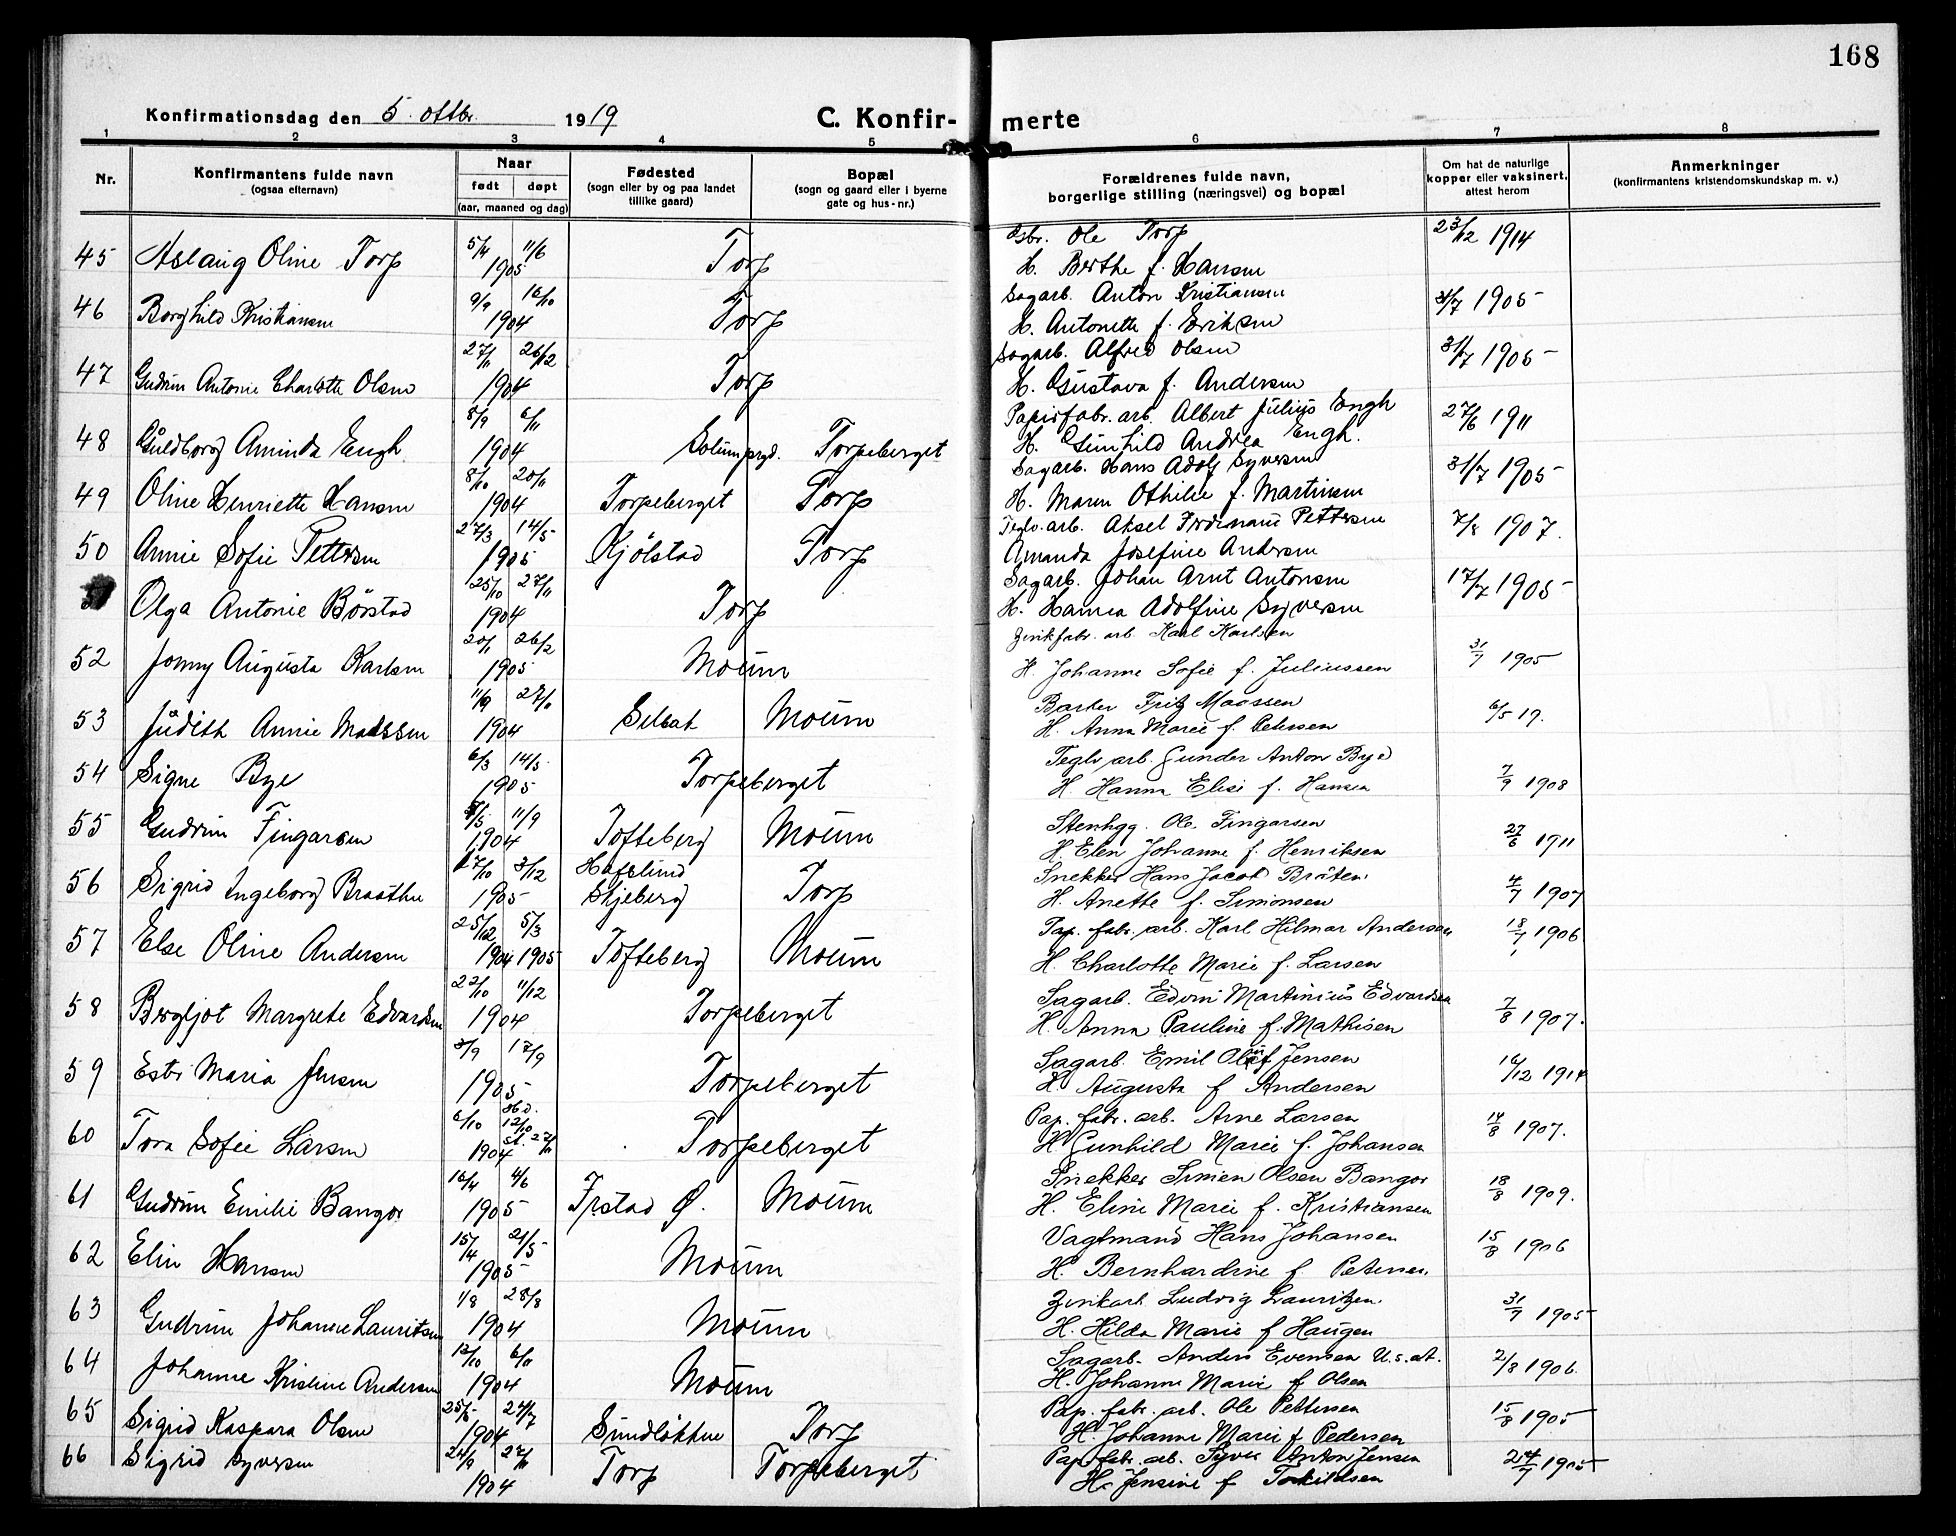 168
Konfirmationsdag den 5. oktbr. 1919
C. Konfirmerte
1 2 3 4 5 6 7 8
Nr.
Konfirmantens fulde navn
(ogsaa efternavn)
Naar
født døpt
(aar, maaned og dag)
Fødested
(sogn eller by og paa landet
tillike gaard)
Bopæl
(sogn og gaard eller i byerne
gate og hus-nr.)
Forældrenes fulde navn,
borgerlige stilling (næringsvei) og bopæl
Om hat de naturlige
kopper eller vaksinert.
attest herom
Anmerkninger
(konfirmantens kristendomskundskap m. v.)
45 Aslaug Oline Torp 5/4 11/6 1905 Torp
Ole Torp 23/12 1914
H. Berthe f. Hansen
46 Borghild Kristiansen 9/9 16/10 1904 Torp
Sagarb. Anton Kristiansen 31/7 1905
H. Antonette f. Eriksen
47 Gudrun Antonie Charlotte Olsen 27/11 26/12 1904 Torp
Sagarb. Alfred Olsen 31/7 1905
H. Gustava f. Andersen
48 Guldborg Aminda Engh 8/9 6/11 1904 Solumsgd. Torpeberget
Papirfabr. arb. Albert Julius Engh 27/6 1911
H. Gunhild Andrea Engh.
49 Oline Henriette Hansen 8/10 20/11 1904 Torpeberget Torp
Sagarb. Hans Adolf Syversen 31/7 1905
H. Maren Othilie f. Martinsen
50 Annie Sofie Pettersen 27/3 14/5 1905 Kjølstad Torp
Teglv. arb. Aksel Ferdinand Pettersen 7/8 1907.
Amanda Josefine Andersen
51 Olga Antonie Børstad 25/10 27/11 1904 Torp
Sagarb. Johan Arnt Antonsen 17/7 1905
H. Hanna Adolfine Syversen
52 Jenny Augusta Karlsen 20/1 26/2 1905 Moum
Zinkfabr. arb. Karl Karlsen 31/7 1905
H. Johanne Sofie f. Juliussen
53 Judith Annie Madssen 11/9 27/10 1904 Selbak Moum
Fritz Maossen 6/5 19.
H. Anna Marie f.
54 Signe Bye 6/3 14/5 1905 Torpeberget
Teglv. arb. Gunder Anton Bye 7/9 1908
H. Hanna Elise f. Hansen
55 Gudrun Fingarsen 11/9 1904 Tofteberg Moum
Stenhgg. Ole Fingarsen 27/6 1911
H. Elen Johanne f. Henriksen
56 Sigrid Ingeborg Braathen 27/10 3/12 1905 Hafslund Skjeberg Torp
Snekker Hans Jacob Bråten 4/7 1907
H. Anette f. Simonsen
57 Else Oline Andersen 25/12 5/3 1904 1905 Tofteberg Moum
Pap. fabr. arb. Karl Hilmar Andersen 18/7 1906
H. Charlotte Marie f. Larsen
58 Bergljot Margrete Edvardsen 22/10 11/12 1904 Torpeberget
Sagarb. Edvin Martinius Edvardsen 7/8 1907.
H. Anna Pauline f. Mathisen
59 Ester Maria Jensen 3/9 17/9 1905 Torpeberget
Sagarb. Emil Jensen 16/12 1914
H. Augusta f. Andersen
60 Tora Sofie Larsen 6/10 12/10 1904 Torpeberget
Pap. fabr. arb. Arne Larsen 14/8 1907.
H. Gunhild Marie f. Johansen
61 Gudrun Emilie Bangor 16/4 4/6 1905 Irstad Ø. Moum
Snekker Simen Olsen Bangor 18/8 1909.
H. Eline Marie f. Kristiansen
62 Elin Hansen 15/4 21/5 1905 Moum
Vagtmand Hans Johansen 15/8 1906
H. Bernhardine f. Petersen
63 Gudrun Johanne Lauritsen 1/8 28/8 1904 Moum
Zinkarb. Ludvig Lauritzen. 31/7 1905
H. Hilda Marie f Haugen
64 Johanne Kristine Andersen 12/10 6/11 1904 Moum
Sagarb. Anders Evensen U.s.A. 2/8 1906.
H. Johanne Marie f Olsen
65 Sigrid Kaspara Olsen 25/5 24/7 1904 Sundløkken Torp
Pap. fabr. arb. Ole Pettersen 15/8 1905
H. Johanne Marie f Pedersen
66 Sigrid Syversen 24/9 27/11 1904 Torp Torpeberget
Pap. fabr. arb. Syver Anton Jensen 24/7 1905
H. Jensine f Torkildsen